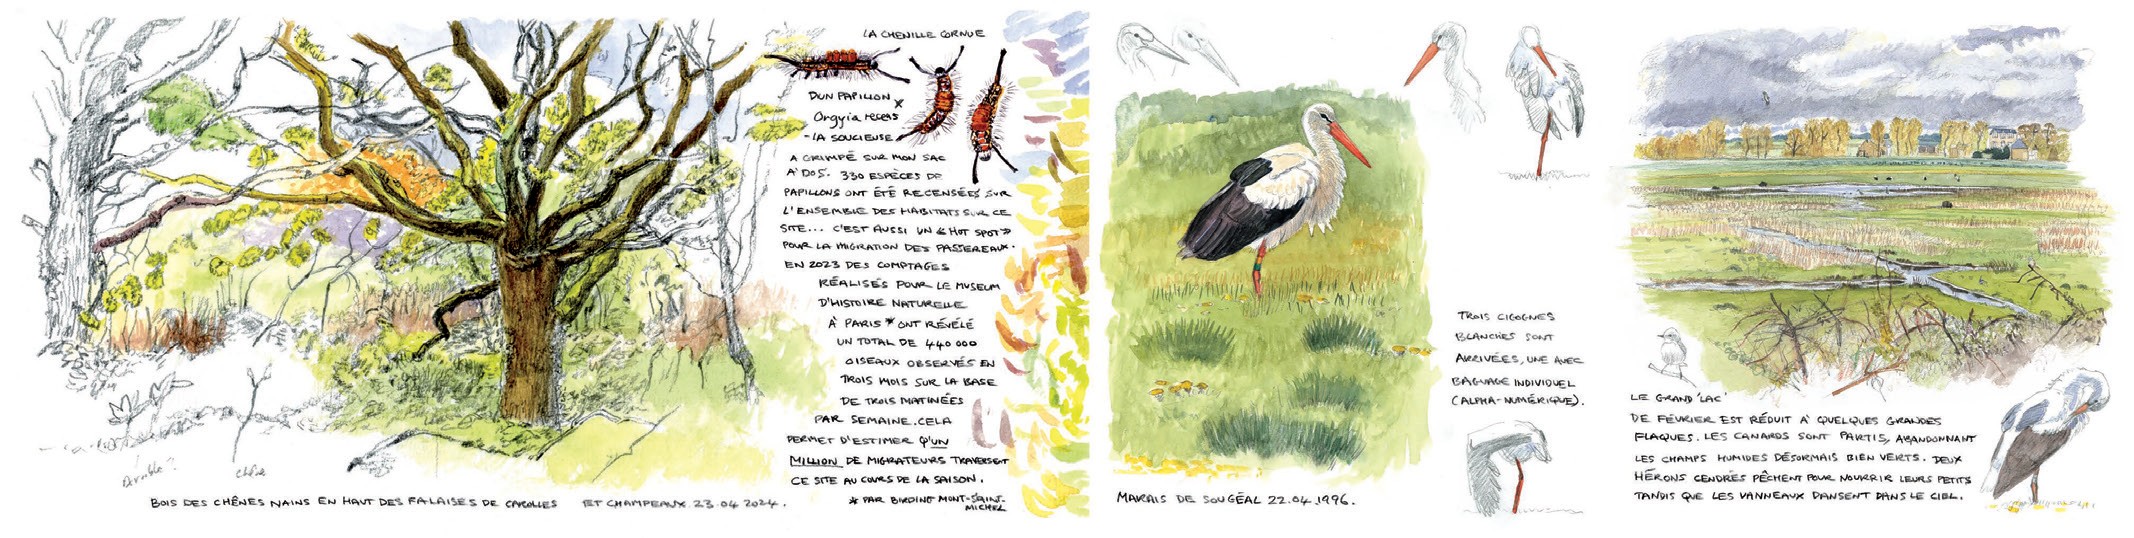 LA CHENILLE CORNUE
D'UN PAPILLON *
Orgyia recens
-LA SOUCIEUSE
A GRIMPÉ SUR MON SAC
À DOS. 330 ESPÈCES DE
PAPILLONS ONT ÉTÉ RECENSÉES SUR
L'ENSEMBLE DES HABITATS SUR CE
SITE... C'EST AUSSI UN « HOT SPOT »
POUR LA MIGRATION DES PASSEREAUX.
EN 2023 DES COMPTAGES
RÉALISÉS POUR LE MUSEUM
D'HISTOIRE NATURELLE
À PARIS * ONT RÉVÉLÉ
UN TOTAL DE 440 000
OISEAUX OBSERVÉS EN
TROIS MOIS SUR LA BASE
DE TROIS MATINÉES
PAR SEMAINE. CELA
PERMET D'ESTIMER QU'UN
MILLION DE MIGRATEURS TRAVERSENT
CE SITE AU COURS DE LA SAISON.
* PAR BIRDING MONT-SAINT-
MICHEL
BOIS DES CHÊNES NAINS EN HAUT DES FALAISES DE CAROLLES ET CHAMPEAUX 23.04 2024.
TROIS CIGOGNES
BLANCHES SONT
ARRIVÉES, UNE AVEC
BAGUAGE INDIVIDUEL
(ALPHA-NUMÉRIQUE).
MARAIS DE SOUGÉAL 22.04.1996.
LE GRAND 'LAC'
DE FÉVRIER EST RÉDUIT À QUELQUES GRANDES
FLAQUES. LES CANARDS SONT PARTIS, ABANDONNANT
LES CHAMPS HUMIDES DÉSORMAIS BIEN VERTS. DEUX
HÉRONS CENDRÉS PÊCHENT POUR NOURRIR LEURS PETITS
TANDIS QUE LES VANNEAUX DANSENT DANS LE CIEL.